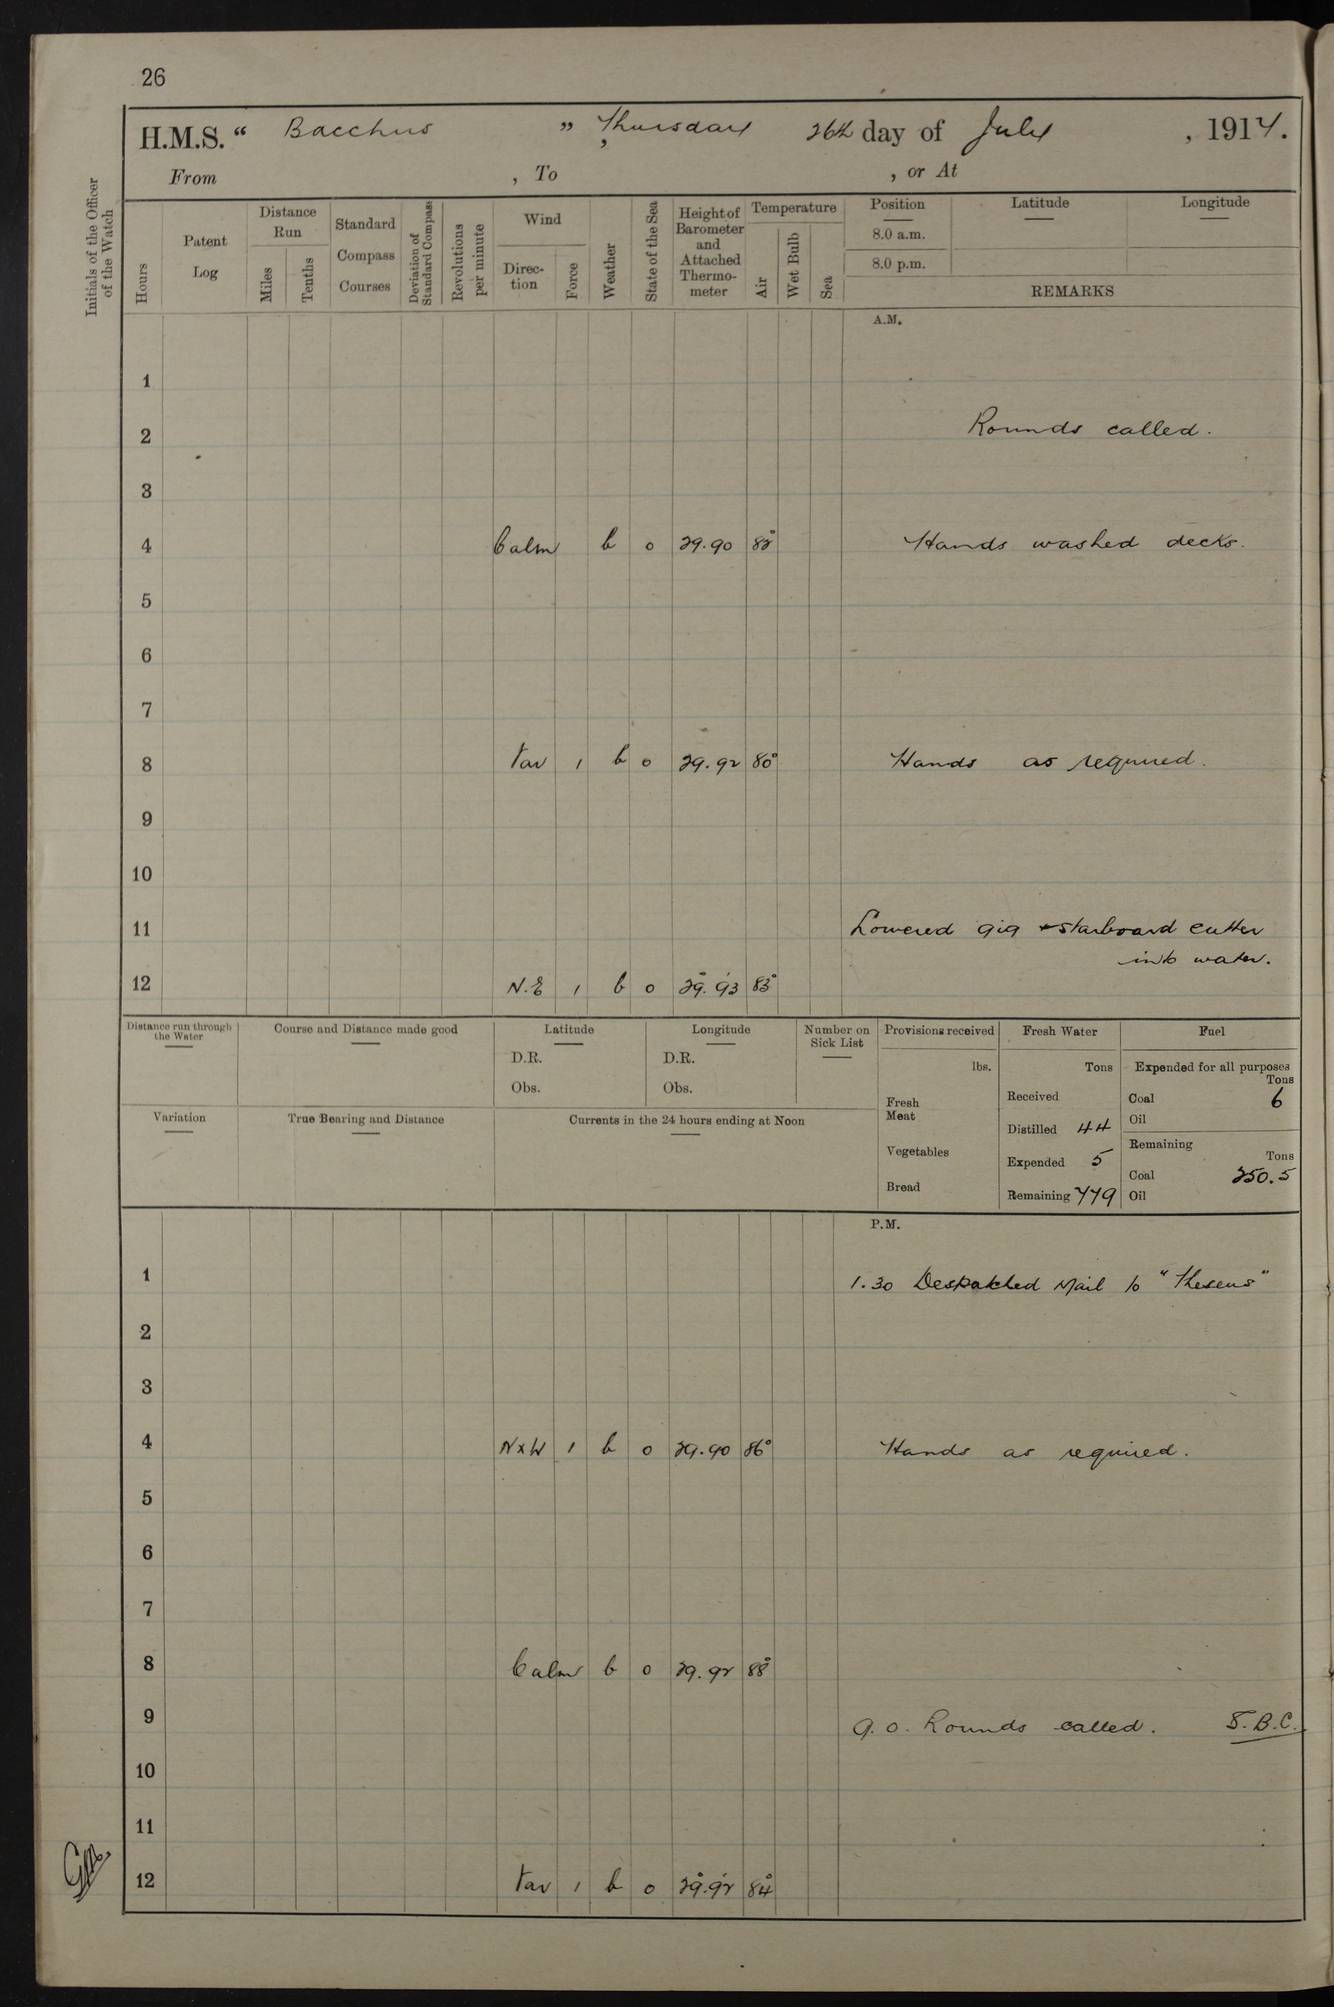 26
H.M.S. “ Bacchus ” , Thursday 26th day of July , 1917.
From , To , or At
Initials of the Officer of the Watch
Hours
Patent Log
Distance Run
Miles
Tenths
Standard Compass Courses
Deviation of Standard Compass
Revolutions per minute
Wind
Direc-tion
Force
Weather
State of the Sea
Height of Barometer and Attached Thermo-meter
Temperature
Air
Wet Bulb
Sea
Position
8.0 a.m.
8.0 p.m.
Latitude
Longitude
REMARKS
A.M.
1
2 Rounds called.
3
4 Calm b 0 29.90 82° Hands washed decks.
5
6
7
8 Var 1 b 0 29.92 80° Hands as required.
9
10
11 Lowered gig + starboard cutter
into water.
12 N.E 1 b 0 29.93 83°
Distance run through the Water
Course and Distance made good
Latitude
D.R.
Obs.
Longitude
D.R.
Obs.
Number on Sick List
Provisions received
lbs.
Fresh Meat
Vegetables
Bread
Fresh Water
Tons
Received
Distilled 44
Expended 5
Remaining 779
Fuel
Expended for all purposes
Tons
Coal 6
Oil
Remaining
Tons
Coal 250.5
Oil
Variation
True Bearing and Distance
Currents in the 24 hours ending at Noon
P.M.
1 1.30 Despatched Mail to “Theseus”
2
3
4 NxW 1 b 0 29.90 86° Hands as required.
5
6
7
8 Calm b 0 29.92 88°
9 9.0. Rounds called. S.B.C.
10
11
12 Var 1 b 0 29.92 84°